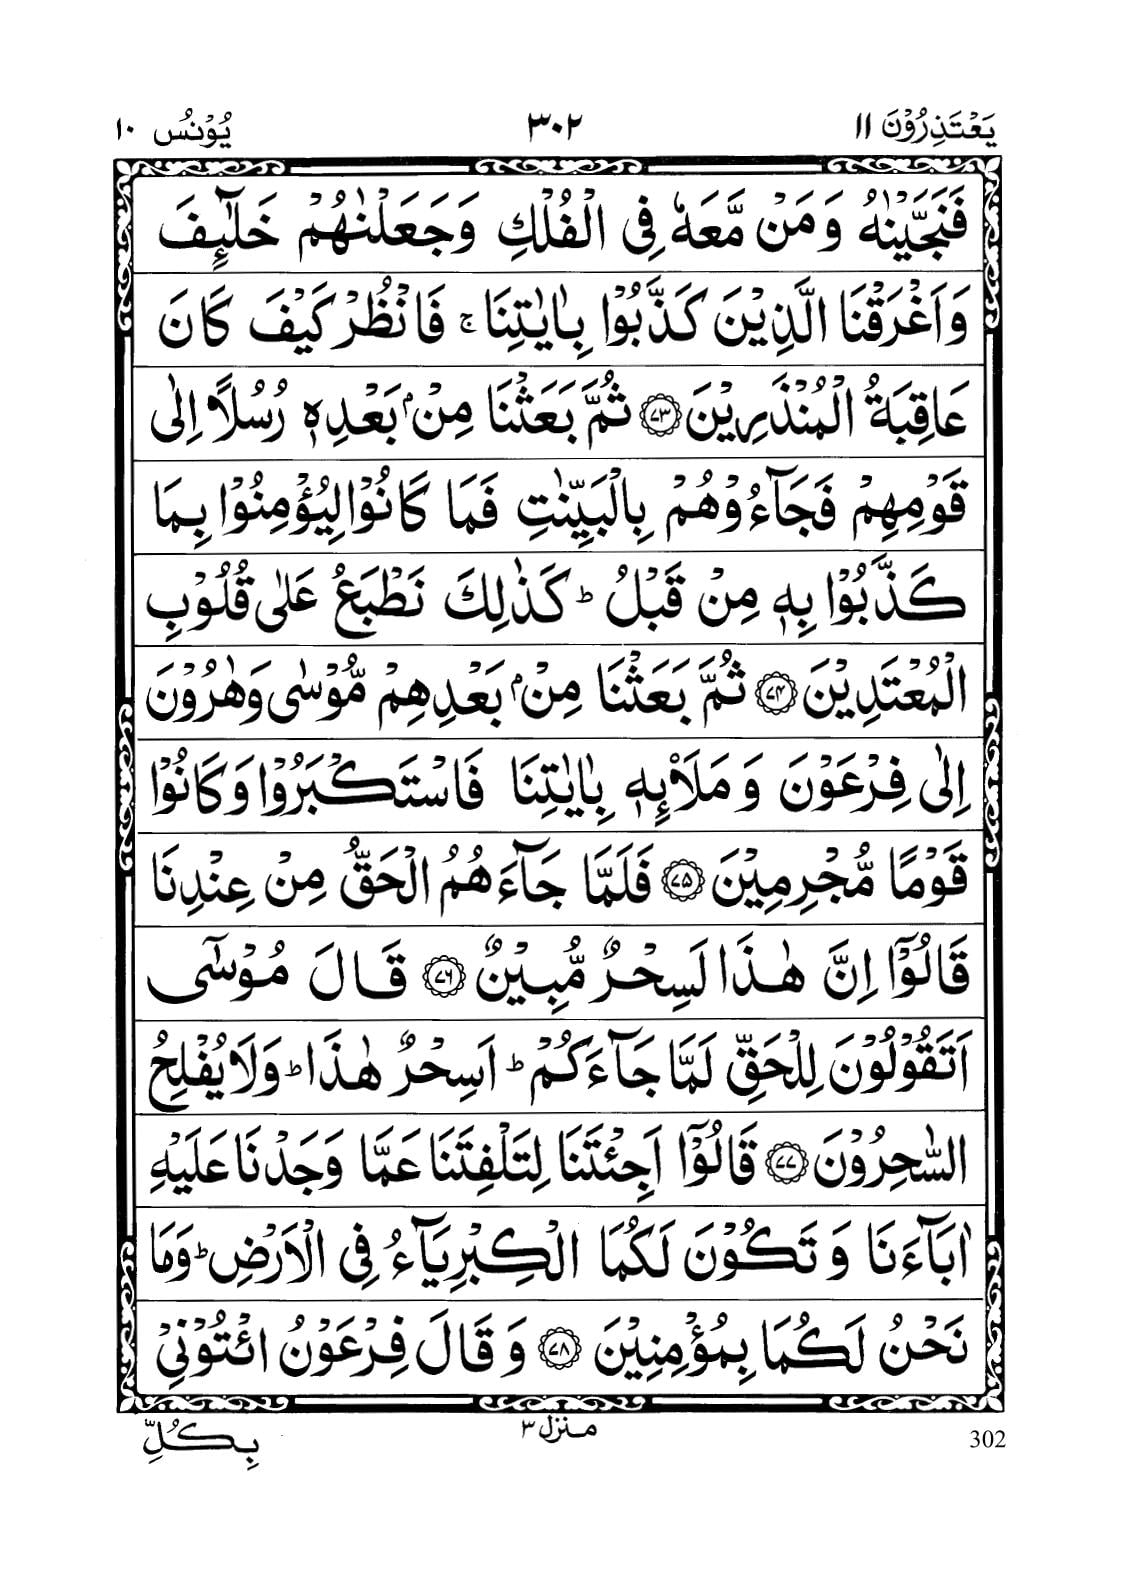 يَعْتَذِرُوْنَ ١١ ٣٠٢ يُوْنُس ١٠
فَنَجَّيْنٰهُ وَمَنْ مَّعَهٗ فِى الْفُلْكِ وَجَعَلْنٰهُمْ خَلٰٓئِفَ
وَاَغْرَقْنَا الَّذِيْنَ كَذَّبُوْا بِاٰيٰتِنَا ۚ فَانْظُرْ كَيْفَ كَانَ
عَاقِبَةُ الْمُنْذَرِيْنَ ﴿٧٣﴾ ثُمَّ بَعَثْنَا مِنْۢ بَعْدِهٖ رُسُلًا اِلٰى
قَوْمِهِمْ فَجَآءُوْهُمْ بِالْبَيِّنٰتِ فَمَا كَانُوْا لِيُؤْمِنُوْا بِمَا
كَذَّبُوْا بِهٖ مِنْ قَبْلُ ؕ كَذٰلِكَ نَطْبَعُ عَلٰى قُلُوْبِ
الْمُعْتَدِيْنَ ﴿٧٤﴾ ثُمَّ بَعَثْنَا مِنْۢ بَعْدِهِمْ مُّوْسٰى وَهٰرُوْنَ
اِلٰى فِرْعَوْنَ وَمَلَا۟ئِهٖ بِاٰيٰتِنَا فَاسْتَكْبَرُوْا وَكَانُوْا
قَوْمًا مُّجْرِمِيْنَ ﴿٧٥﴾ فَلَمَّا جَآءَهُمُ الْحَقُّ مِنْ عِنْدِنَا
قَالُوْٓا اِنَّ هٰذَا لَسِحْرٌ مُّبِيْنٌ ﴿٧٦﴾ قَالَ مُوْسٰٓى
اَتَقُوْلُوْنَ لِلْحَقِّ لَمَّا جَآءَكُمْ ؕ اَسِحْرٌ هٰذَا ؕ وَلَا يُفْلِحُ
السّٰحِرُوْنَ ﴿٧٧﴾ قَالُوْٓا اَجِئْتَنَا لِتَلْفِتَنَا عَمَّا وَجَدْنَا عَلَيْهِ
اٰبَآءَنَا وَتَكُوْنَ لَكُمَا الْكِبْرِيَآءُ فِى الْاَرْضِ ؕ وَمَا
نَحْنُ لَكُمَا بِمُؤْمِنِيْنَ ﴿٧٨﴾ وَقَالَ فِرْعَوْنُ ائْتُوْنِيْ
302 منزل ٣ بِكُلِّ